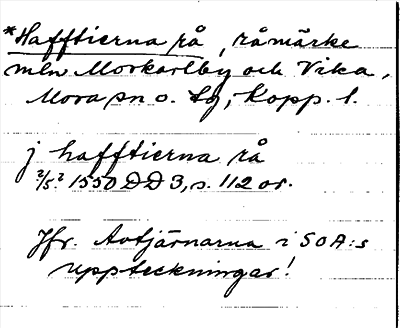 *Hafftierna rå, råmärke
mln Morkarlby och Vika,
Mora sn o. lg, Kopp. l.
j hafftierna rå
2/5? 1550 DD 3, s. 112 or.
Jfr. Avtjärnarna i SOA:s
uppteckningar!